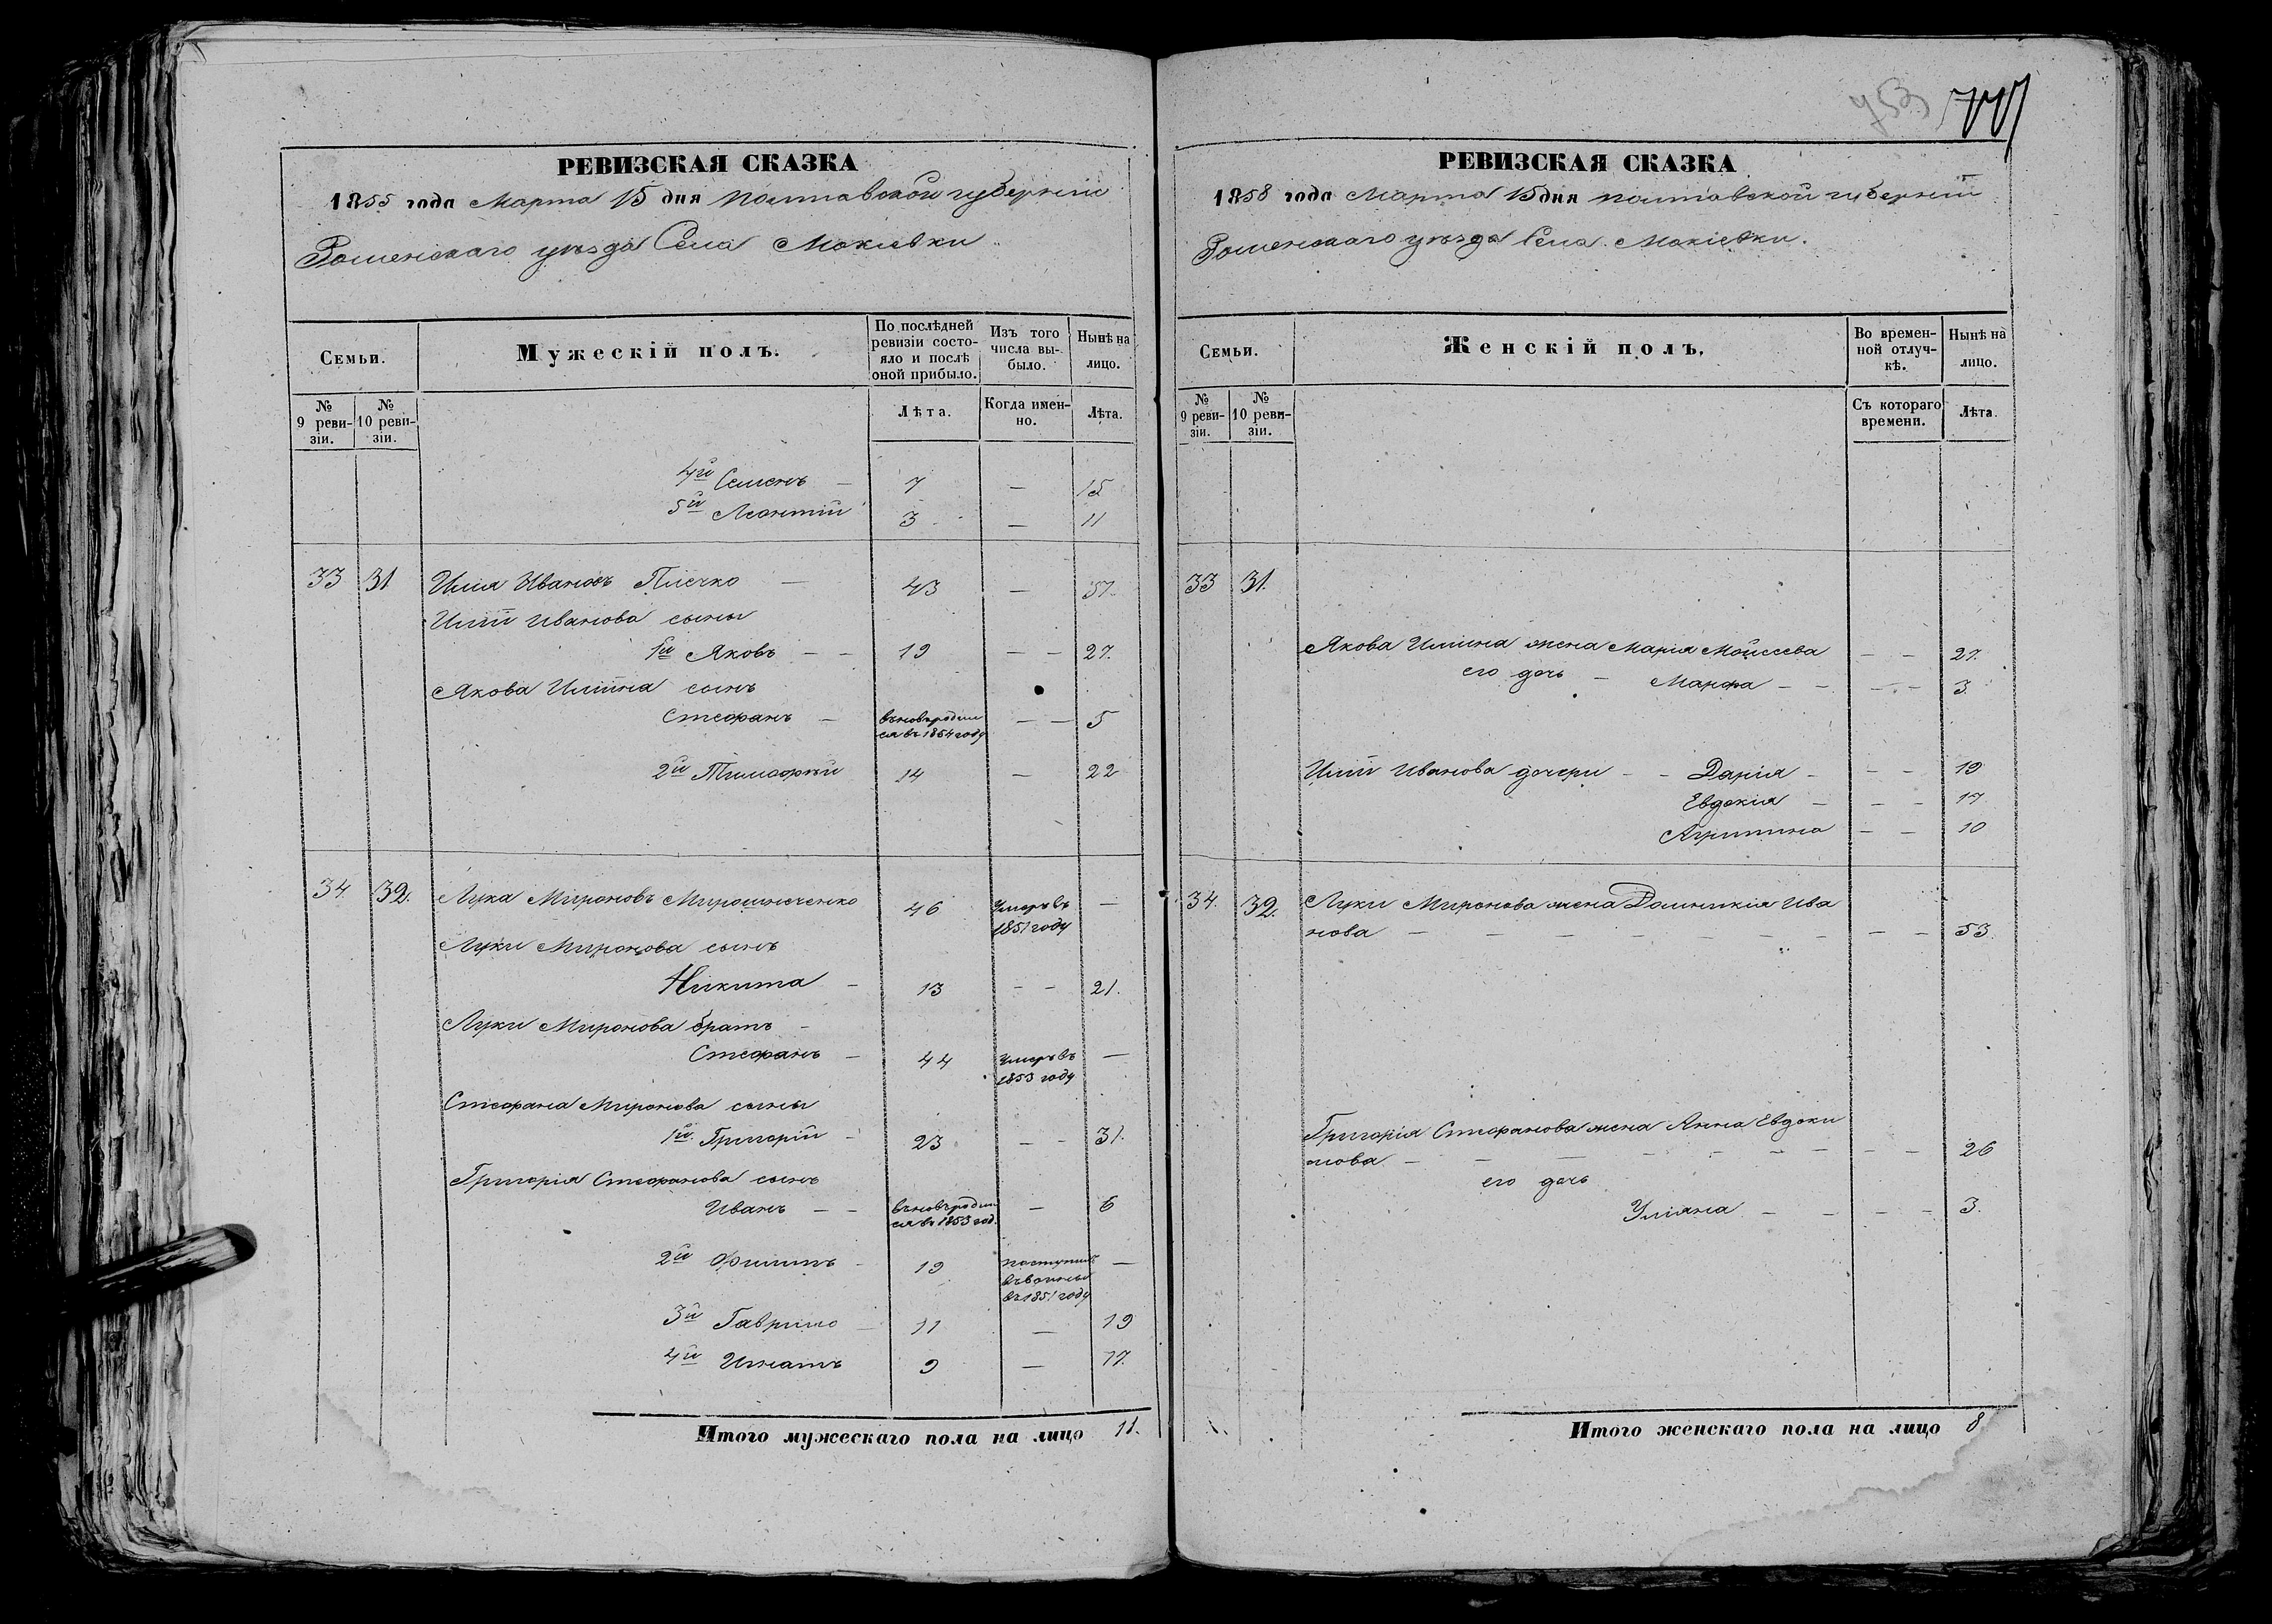 753
РЕВИЗСКАЯ СКАЗКА
1855 года Марта 15 дня Полтавской губерніи
Роменскаго уѣзда Села Мокіевки
Семьи.
Мужескій полъ.
По послѣдней ревизіи состояло и послѣ оной прибыло.
Изъ того числа выбыло.
Нынѣ на лицо.
№ 9 ревизіи.
№ 10 ревизіи.
Лѣта.
Когда именно.
Лѣта.
4й Семенъ — 7 — 15
5й Леонтій 3 — 11
33 31 Илія Ивановъ Плечко — 43 — 57.
Иліи Иванова сыны
1й Яковъ — — 19 — — 27.
Якова Иліина сынъ
Стефанъ — вновь родился въ 1854 году — — 5
2й Тимофѣй 14 — 22
34. 32. Лука Мироновъ Мирошниченко 46 Умеръ въ 1851 году —
Луки Миронова сынъ
Никита — 13 — — 21.
Луки Миронова братъ —
Стефанъ — 44 Умеръ въ 1853 году —
Стефана Миронова сыны
1й Григорій — 23 — — 31.
Григорія Стефанова сынъ
Иванъ — — вновь родился въ 1853 год. — 6
2й Филипъ — 19 поступилъ въ воины въ 1851 году —
3й Гаврило — 11 — 19
4й Игнатъ 9 — 17.
Итого мужескаго пола на лицо 11.
РЕВИЗСКАЯ СКАЗКА
1858 года Марта 15 дня Полтавской губерніи
Роменскаго уѣзда Села Мокіевки.
Семьи.
Женскій полъ.
Во временной отлучкѣ.
Нынѣ на лицо.
№ 9 ревизіи.
№ 10 ревизіи.
Съ котораго времени.
Лѣта.
33 31.
Якова Иліина жена Марія Мойсеева — — 27.
его дочь — Марфа — — — — 3.
Иліи Иванова дочери — — Дарія — — — 19
Евдокія — — — 17
Агрипина — — 10
34. 32. Луки Миронова жена Домникія Ива
нова — — — — — — — — — 53.
Григорія Стефанова жена Анна Евдоки
мова — — — — — — — — — 26
его дочь
Уліяна — — — — 3.
Итого женскаго пола на лицо 8